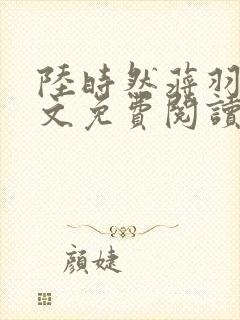 陸時然蔣羽
文免費閱讀
顏婕